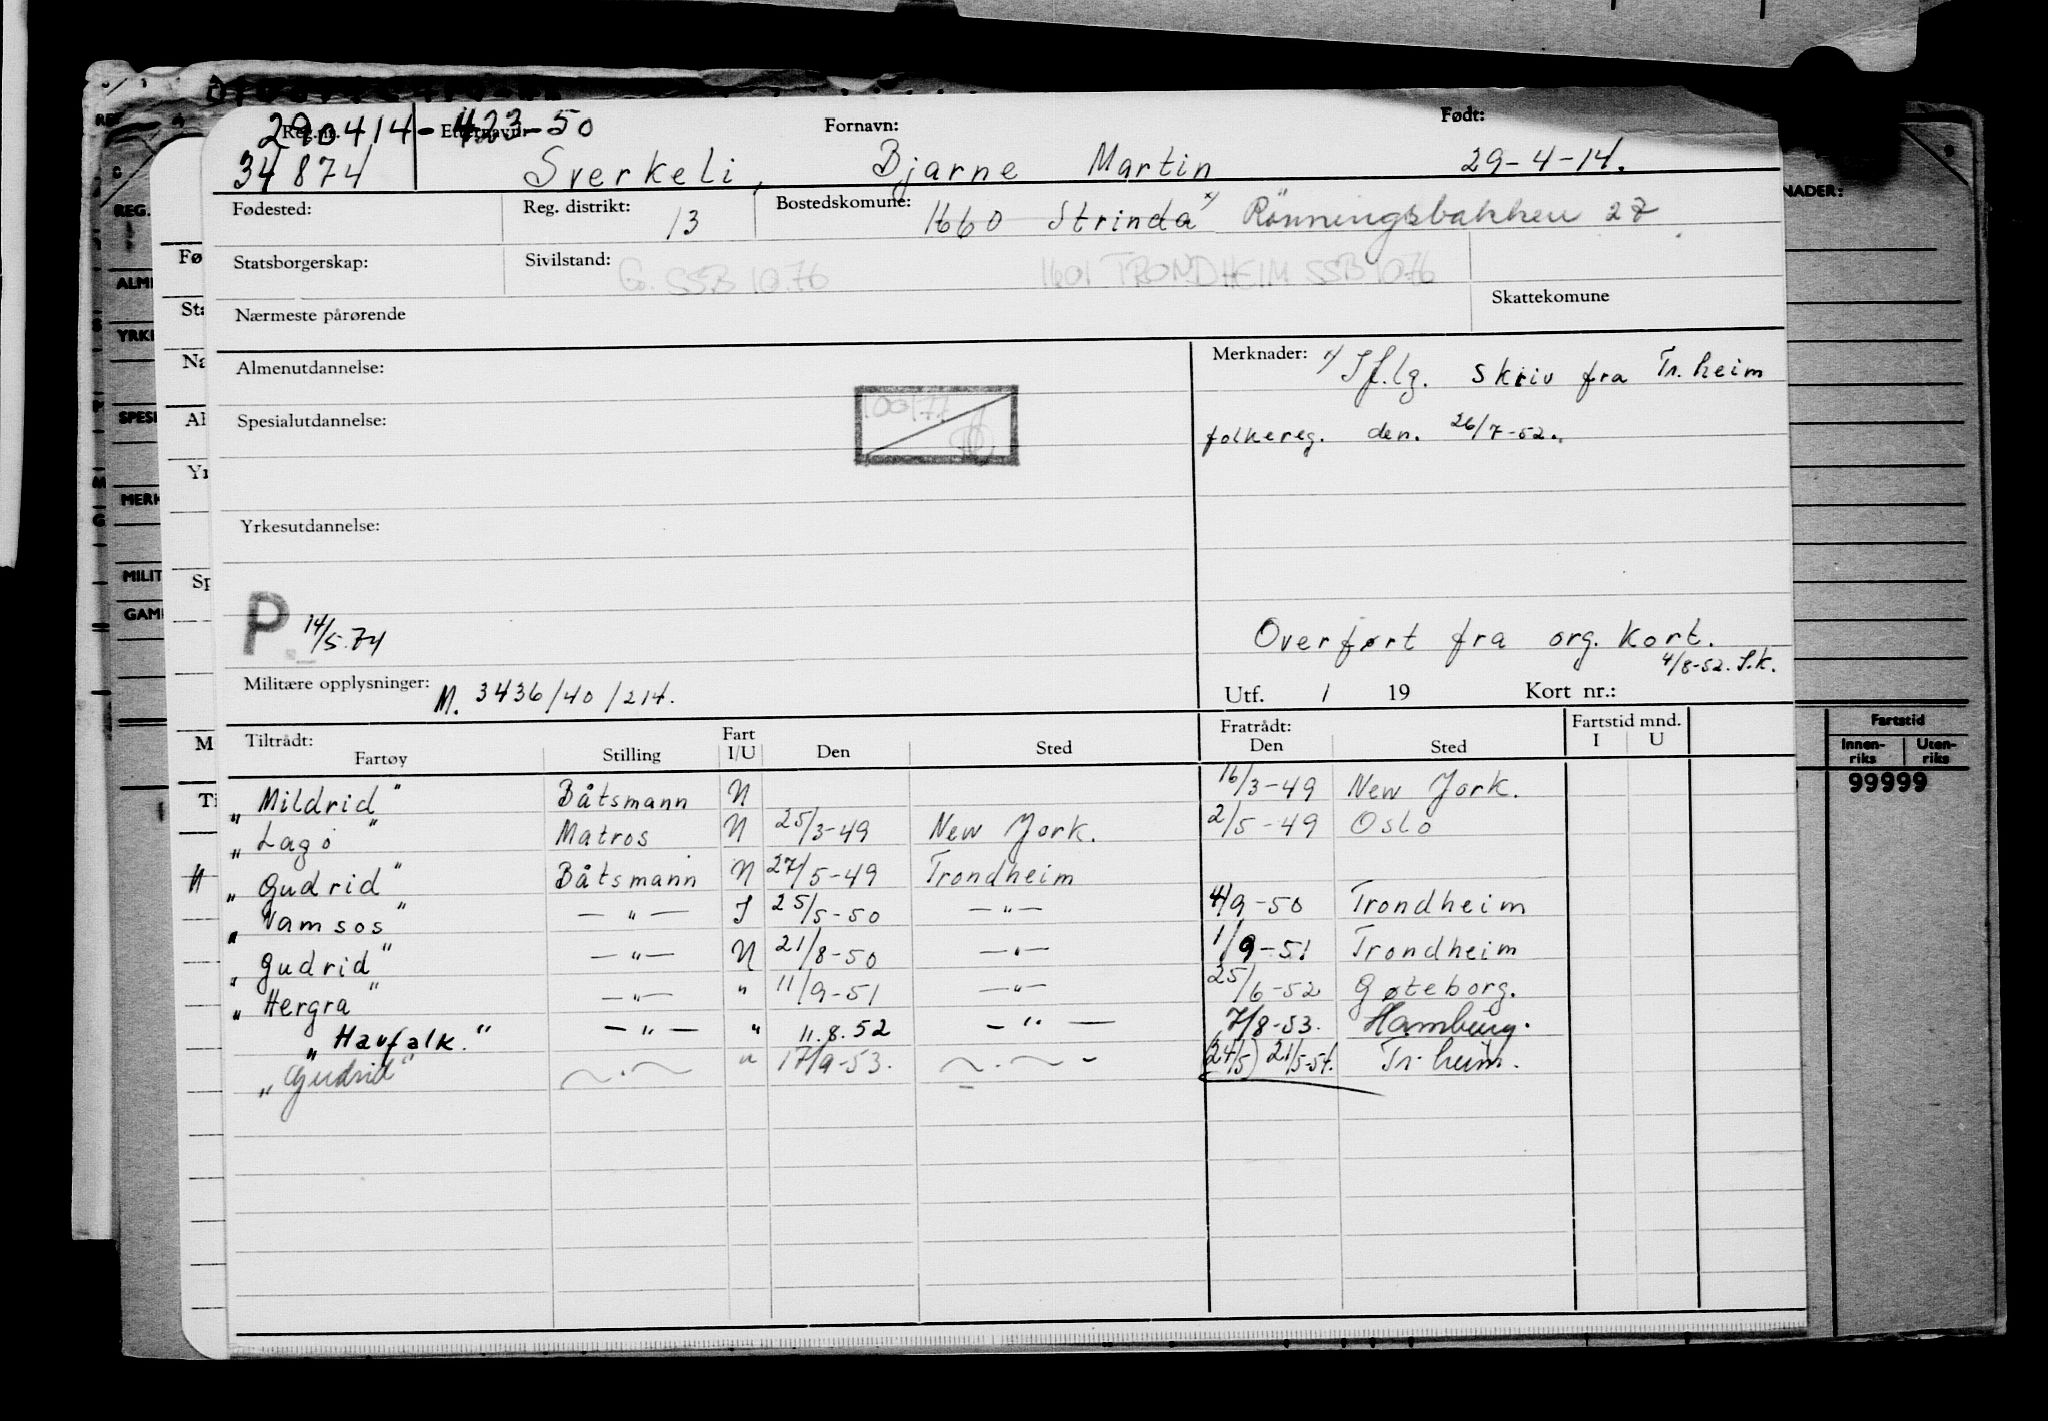 290414-423-50
Reg.nr. Etternavn: Fornavn: Født:
34874 Sverkeli, Bjarne Martin 29-4-14.
Fødested: Reg. distrikt: 13 Bostedskomune: 1660 Strinda x) Rönningsbakken 27
Statsborgerskap: Sivilstand: G. SSB 10.76 1601 TRONDHEIM SSB 1076
Nærmeste pårørende Skattekomune
Almenutdannelse: Merknader: x) If.lg. skriv fra Tr.heim
Spesialutdannelse: folkereg. den. 26/7-52.
Yrkesutdannelse:
P 14/5.74
Overført fra org. Kort.
4/8-52. S.K.
Militære opplysninger: M. 3436/40/214. Utf. / 19 Kort nr.:
Tiltrådt: Fart Fratrådt: Fartstid mnd.
Fartøy Stilling I/U Den Sted Den Sted I U
„Mildrid" Båtsmann U 16/3-49 New York.
„Lago" Matros U 25/3-49 New York. 2/5-49 Oslo
„Gudrid" Båtsmann U 27/5-49 Trondheim
„Namsos" — " — I 25/5-50 — " — 4/9-50 Trondheim
„Gudrid" — " — U 21/8-50 — " — 1/9-51 Trondheim
„Hergra" — " — " 11/9-51 — " — 25/6-52 Gøteborg.
„Havfalk." — " — " 11.8.52 — " — 7/8-53. Hamburg.
„Gudrid" — " — " 17/9-53. — " — (24/5) 21/5-54. Tr.heim.
REG.
ALM
YRK
SPES
MERK
MILIT
GAM
Fø
Sta
Na
Al
Yr
Sp
M
Ti
NADER:
Fartstid
Innen-riks Uten-riks
99999